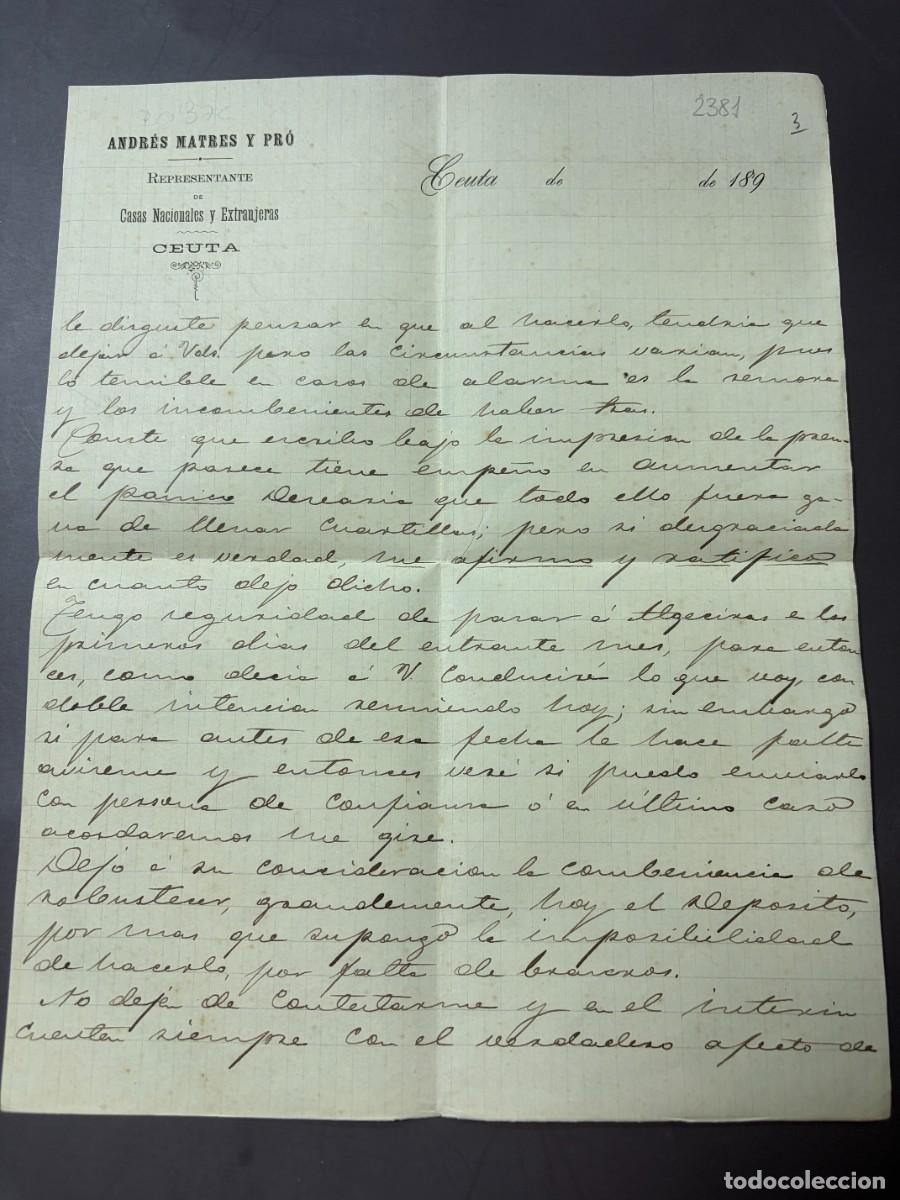 2381
3
ANDRÉS MATRES Y PRÓ
REPRESENTANTE
DE
Casas Nacionales y Extranjeras
CEUTA
Ceuta de de 189
le disguste pensar en que al hacerlo, tendria que
dejar á Vds. pero las circunstancias varian, pues
lo temible en casos de alarma es la
y los incombenientes de haber tras.
Conste que escribo bajo la impresion de la pren-
sa que parece tiene empeño en aumentar
el panico Desearia que todo ello fuera ga-
na de llenar cuartillas; pero si desgraciada
mente es verdad, me afirmo y ratifico
en cuanto dejo dicho.
Tengo seguridad de pasar á Algeciras á los
primeros dias del entrante mes, para enton
ces, como decia á V. conduciré lo que voy, con
doble intencion reuniendo hoy; sin embargo
si para antes de esa fecha le hace falta
aviseme y entonces veré si puedo enviarlo
con persona de confianza ó en último caso
acordaremos me gire.
Dejo á su consideracion la combeniencia de
robustecer, grandemente, hoy el Deposito,
por mas que supongo la imposibilidad
de hacerlo, por falta de
No dejen de contestarme y en el interin
cuenten siempre con el verdadero afecto de
todocoleccion